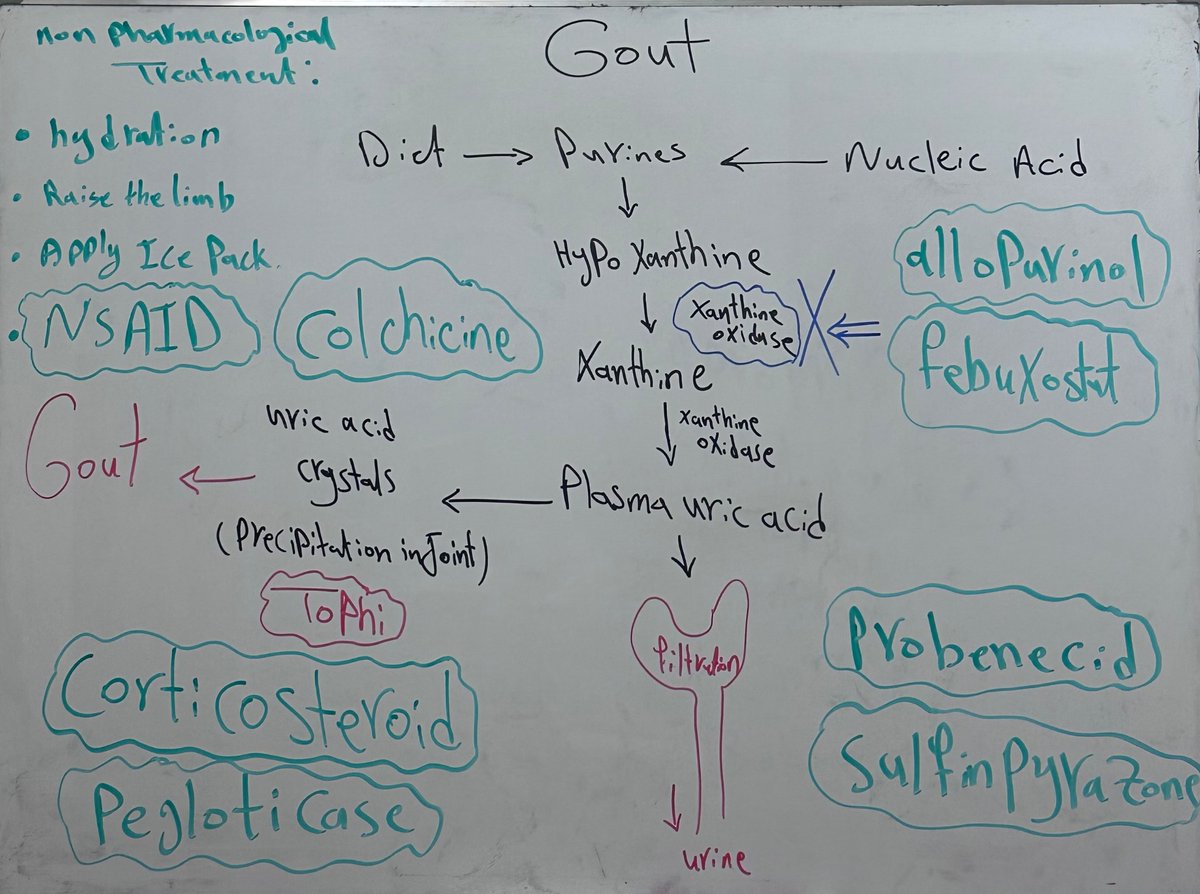 Gout
non Pharmacological
Treatment:
• hydration
• Raise the limb
• Apply Ice Pack.
• NSAID
Colchicine
Diet → Purines ← Nucleic Acid
↓
HyPo Xanthine
↓ Xanthine
oxidase
alloPurinol
febuXostat
Xanthine
↓ xanthine
oXidase
Plasma uric acid
uric acid
crystals
(Precipitation in Joint)
Gout
Tophi
Corticosteroid
Pegloticase
filtration
urine
Probenecid
SulfinPyraZone